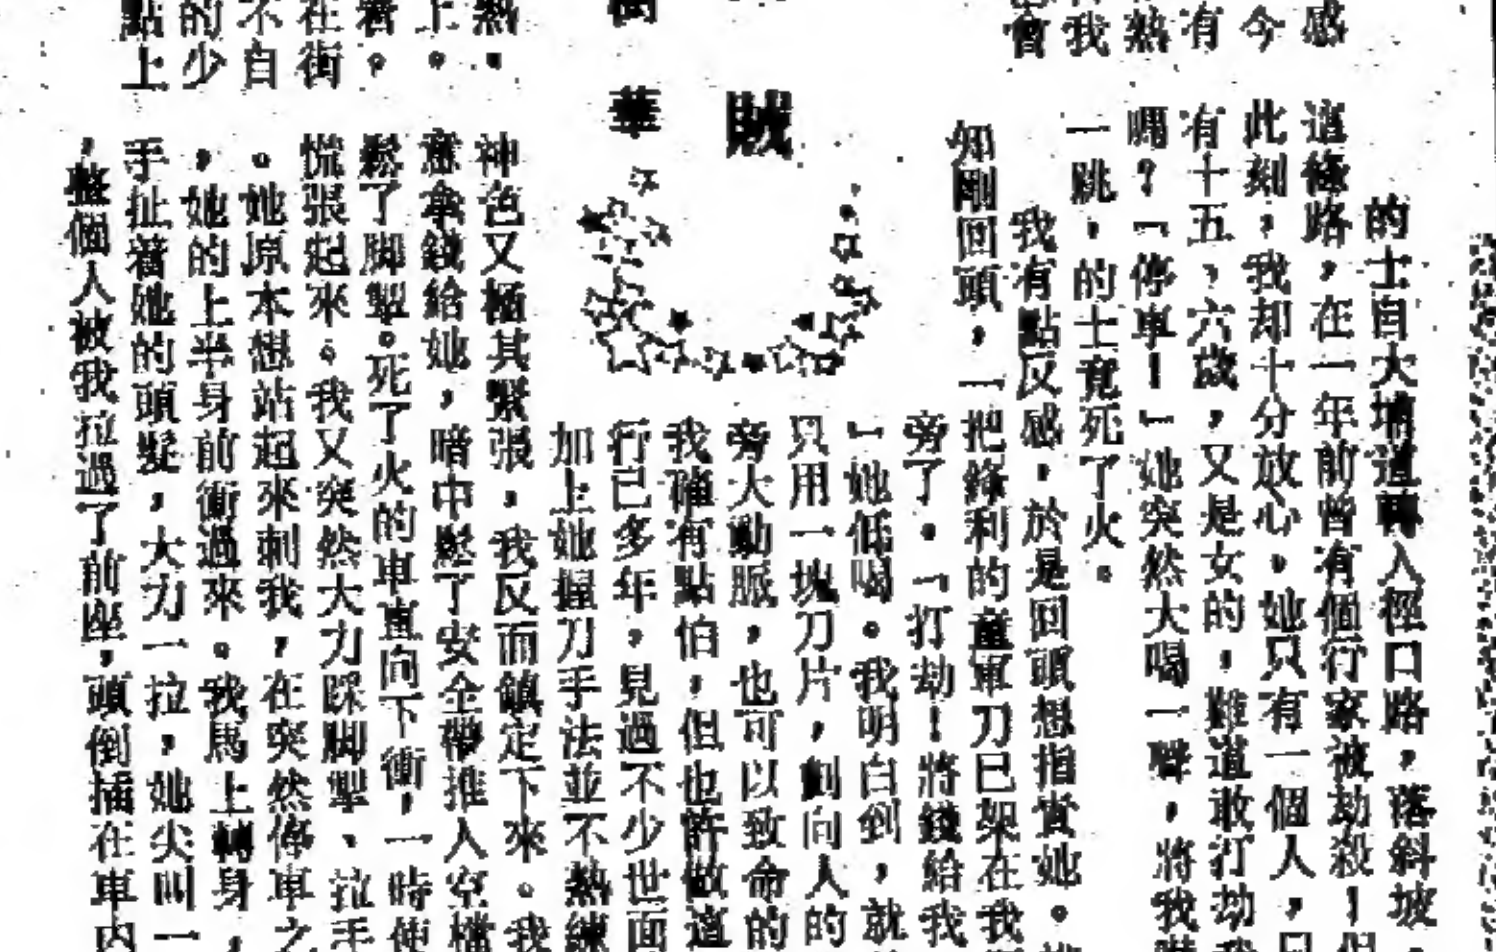 感
今
有
熱
我
會
的士自大埔道轉入徑口路，落斜坡
這條路，在一年前曾有個行家被劫殺！但
此刻，我却十分放心，她只有一個人，只
有十五，六歲，又是女的，難道敢打劫我
嗎？「停車！」她突然大喝一聲，將我嚇
一跳，的士竟死了火。
我有點反感，於是回頭想指責她。
知剛回頭，一把鋒利的童軍刀已架在我
旁了。「打劫！將錢給我
」她低喝。我明白到，就
只用一塊刀片，劃向人的
旁大動脈，也可以致命的
我確有點怕，但也許做這
行已多年，見過不少世面
加上她握刀手法並不熱練
賊
華
熱。
上。
着。
在街
不自
的少
點上
神色又極其緊張，我反而鎮定下來。我
意拿錢給她，暗中鬆了安全帶推入空檔
鬆了脚掣。死了火的車直向下衝，一時使
慌張起來。我又突然大力踩脚掣、拉手
。她原本想站起來刺我，在突然停車之
，她的上半身前衝過來。我馬上轉身，
手扯着她的頭髮，大力一拉，她尖叫一
，整個人被我拉過了前座，頭倒插在車內